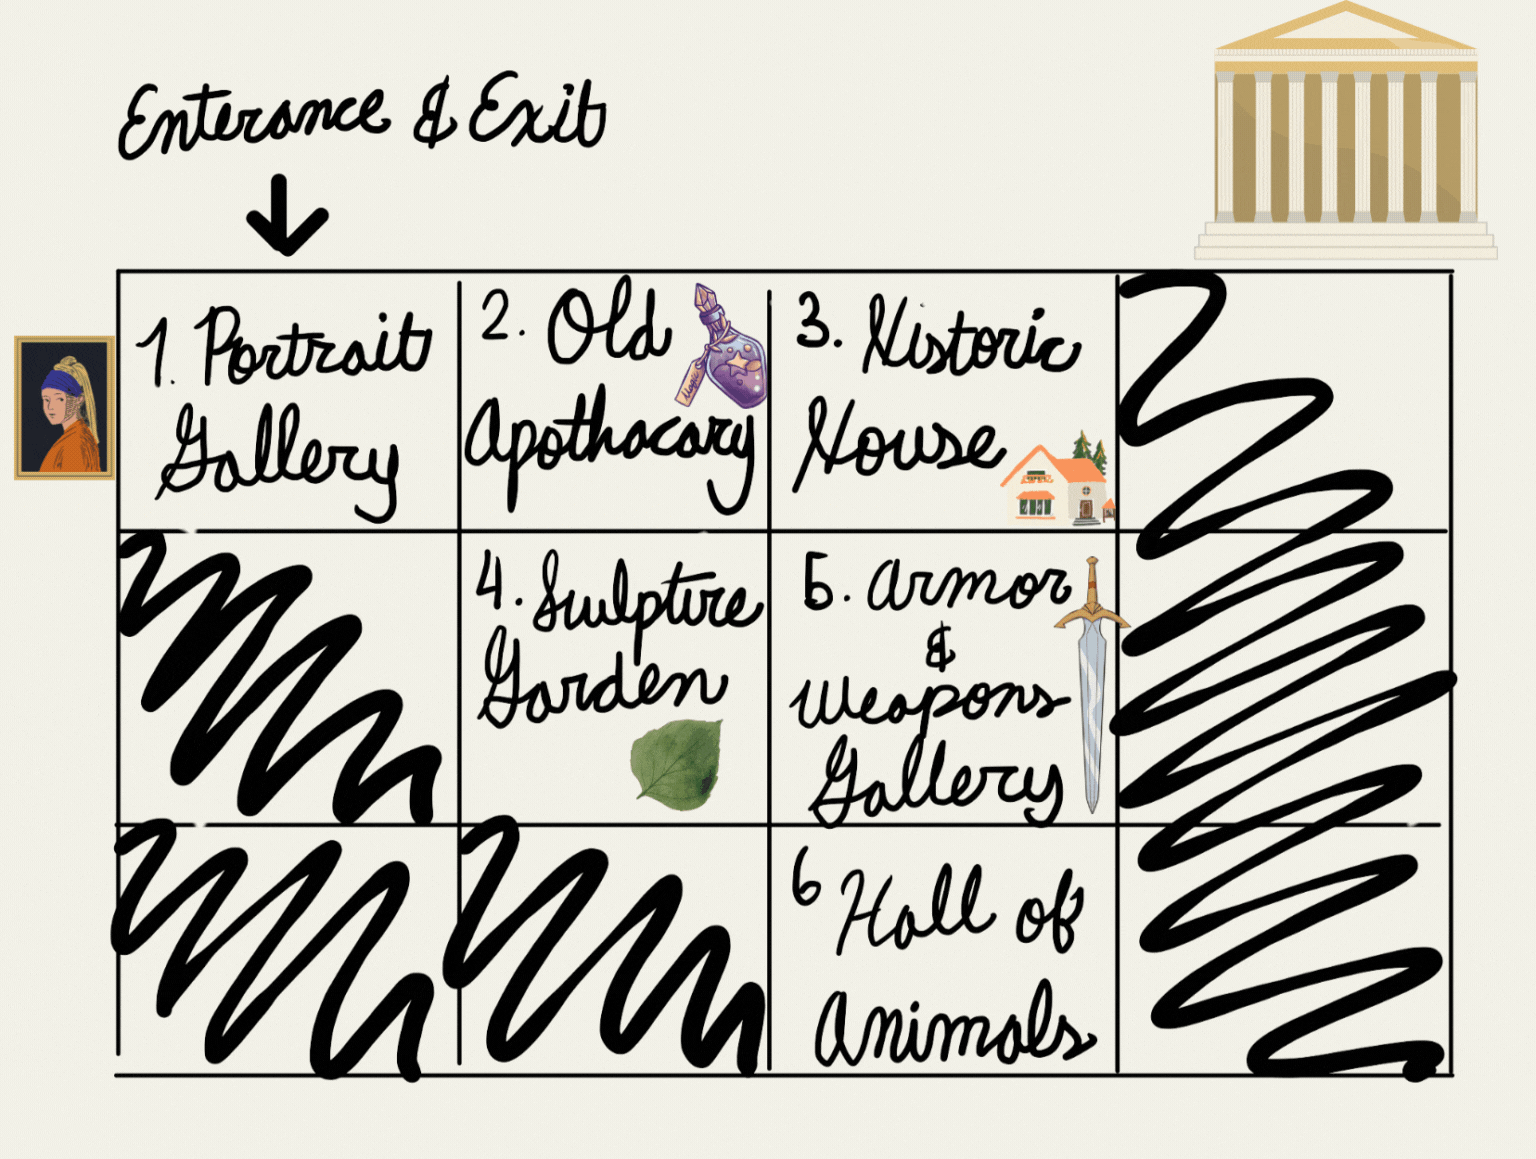 Enterance & Exit
1. Portrait
Gallery
2. Old
Apothacary
Magic
3. Historic
House
4. Sculpture
Garden
5. Armor
&
Weapons
Gallery
6 Hall of
Animals